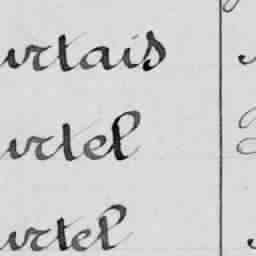 urtais
urtel
urtel